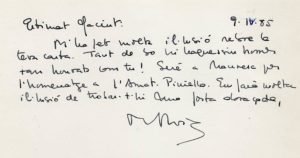 Estimat Jacint: 9.IV.85
M'ha fet molta il·lusió rebre la
teva carta. Tant de bo hi hagués homes
tan honrats com tu! Seré a Manresa per
l'homenatge a l'Amat. Piniella. Em farà molta
il·lusió de trobar-t'hi. Una forta abraçada,